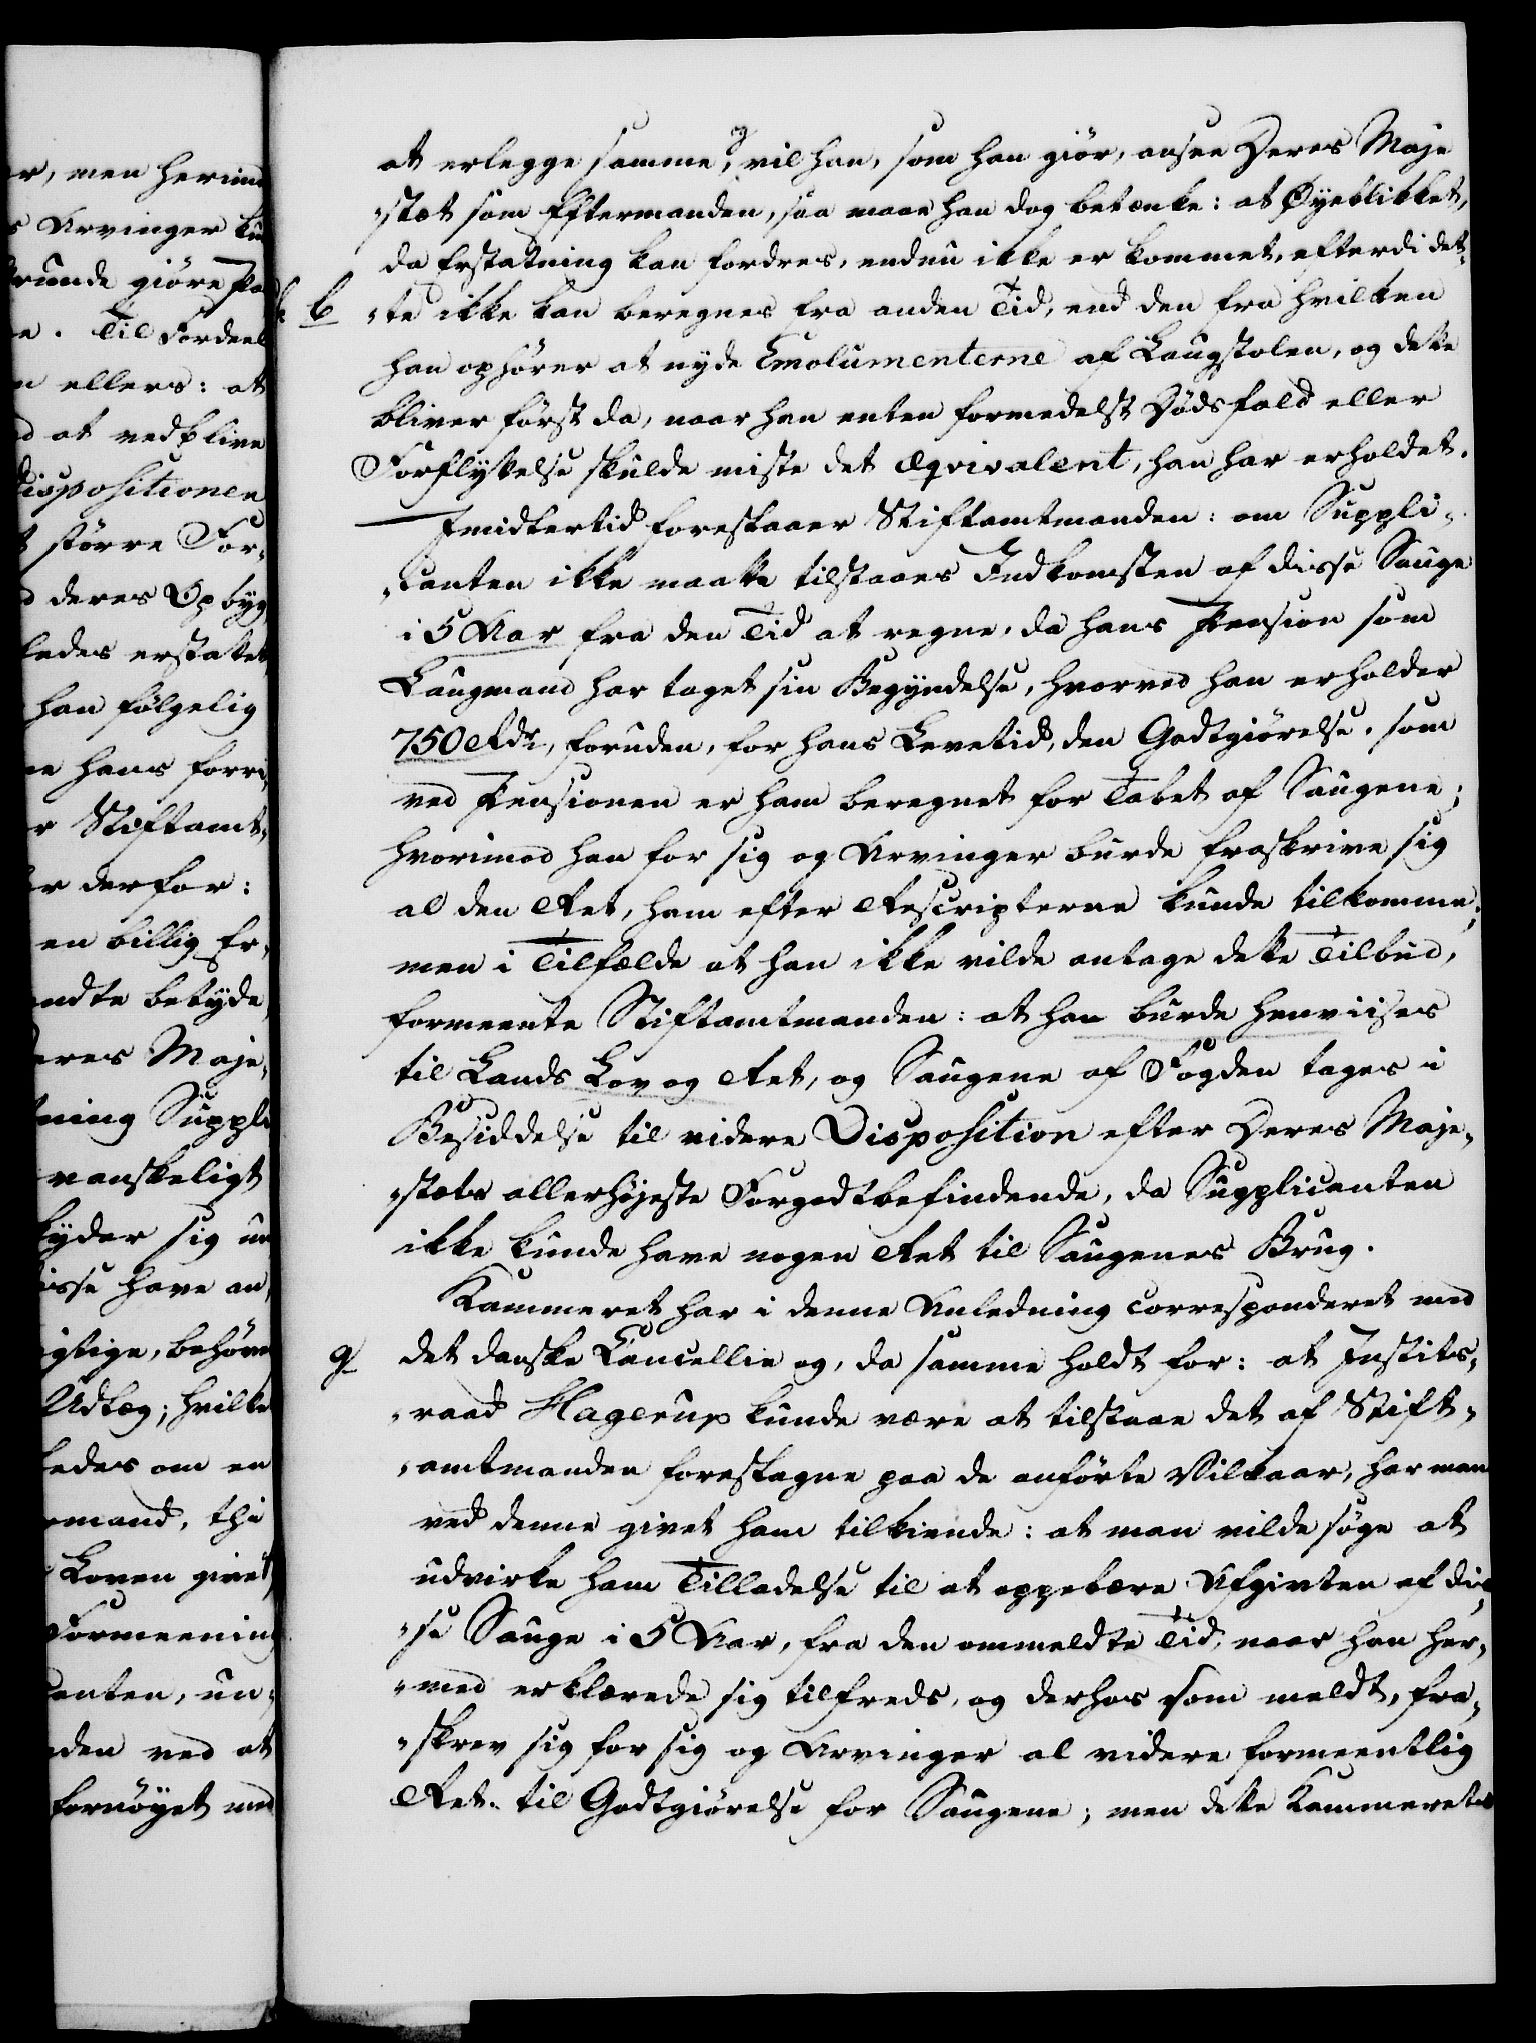 er, men herimod
s Arvinger kun
Grunde giöre Paa
e. Til Fordeel
n ellers: at
d at vedblive
Dispositionen
t större For-
d deres Opbyg
ledes erstattet,
han fölgelig
ne hans forri,
er Stiftamt,
er derfor:
en billig Er,
endte betyde,
Deres Maje,
ning Suppli
vanskeligt
byder sig un
isse have an,
igtige, behöve
Udlæg; hvilke
ledes om en
rmand, thi
Loven givet,
Formeening
canten, un,
den ved at
fornöyet med
at erlegge samme; vil han, som han giör, ansee Deres Maje
„stæt som Eftermanden, saa maae han dog betænke: at Öyeblikket,
da Erstatning kan fordres, endnu ikke er kommet, efterdi det,
b „te ikke kan beregnes fra anden Tid, end den fra hvilken
han ophörer at nyde Emolumenterne af Laugstolen, og dette
bliver först da, naar han enten formedelst Dödsfald eller
Forflyttelse skulde miste det æqvivalent, han har erholdet.
Imidlertid foreslaaer Stiftamtmanden: om Suppli-
„canten ikke maatte tilstaaes Indkomsten af disse Sauge
i 5 Aar fra den Tid at regne, da hans Pension som
Laugmand har taget sin Begyndelse, hvorved han erholder
750 Rdr, foruden, for hans Levetid, den Godtgiörelse, som
ved Pensionen er ham beregnet for Tabet af Saugene;
hvorimod han for sig og Arvinger burde fraskrive sig
al den Ret, ham efter Rescripterne kunde tilkomme;
men i Tilfælde at han ikke vilde antage dette Tilbud,
formeente Stiftamtmanden: at han burde henviises
til Lands Lov og Ret, og Saugene af Fogden tages i
Besiddelse til videre Disposition efter Deres Maje,
„stæts allerhöjeste Forgodtbefindende, da Supplicanten
ikke kunde have nogen Ret til Saugenes Brug.
Kammeret har i denne Anledning corresponderet med
g det danske Cancellie og, da samme holdt for: at Justits,
„raad Hagerup kunde være at tilstaae det af Stift,
„amtmanden foreslagne paa de anförte Vilkaar, har man
ved denne givet ham tilkiende: at man vilde söge at
udvirke ham Tilladelse til at oppebære Afgivten af dis,
„se Sauge i 5 Aar, fra den ommeldte Tid, naar han her,
„med erklærede sig tilfreds, og derhos som meldt, fra,
„skrev sig for sig og Arvinger al videre formeentlig
Ret til Godtgiörelse for Saugene; men dette Kammerets